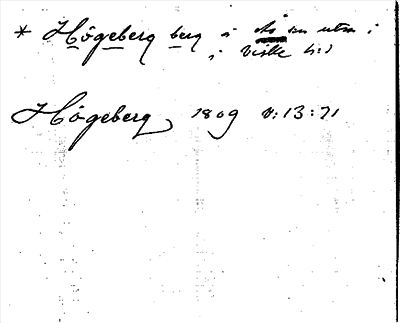 * Högeberg berg å Ås sn utm i
i Viske h:d
Högeberg 1809 V:13:71